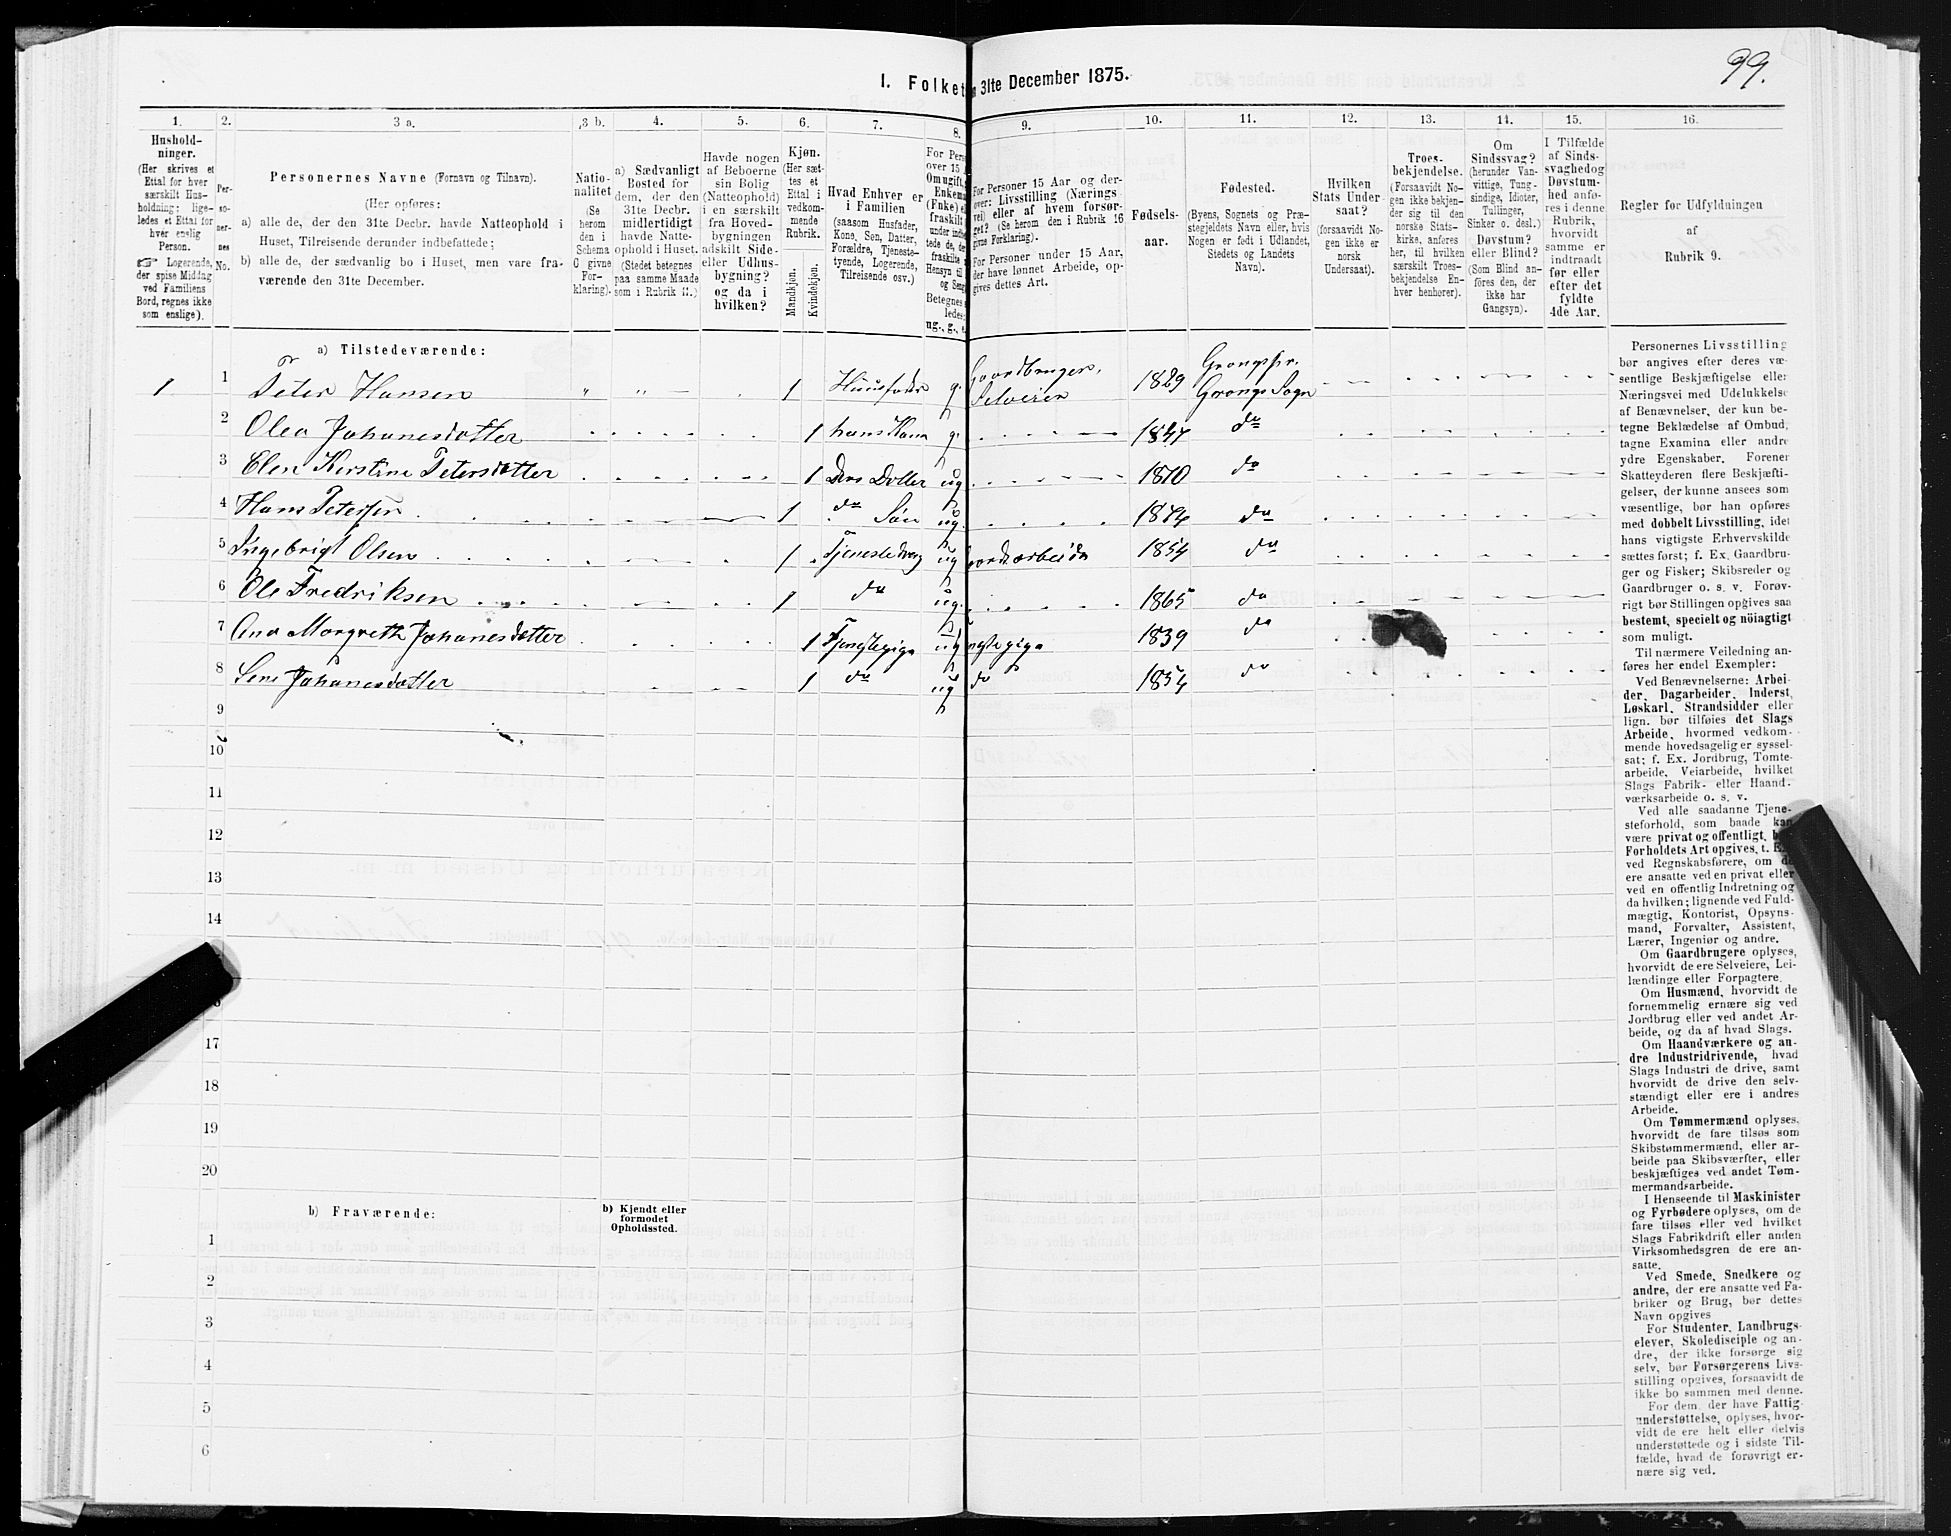 99.
I. Folket
n 31te December 1875.
1. 2. 3 a. 3 b. 4. 5. 6. 7. 8. 9. 10. 11. 12. 13. 14. 15. 16.
Hushold-
ninger.
(Her skrives et
Ettal for hver
særskilt Hus-
holdning; lige-
ledes et Ettal for
hver enslig
Person.
☞ Logerende,
der spise Middag
ved Familiens
Bord, regnes ikke
som enslige).
Per-
so-
ner-
nes
No.
Personernes Navne (Fornavn og Tilnavn).
(Her opføres:
a) alle de, der den 31te Decbr. havde Natteophold i
Huset, Tilreisende derunder indbefattede;
b) alle de, der sædvanlig bo i Huset, men vare fra-
værende den 31te December.
Natio-
nalitet
(Se
herom
den i
Schema
0 givne
For-
klaring).
a) Sædvanligt
Bosted for
dem, der den
31te Decbr.
midlertidigt
havde Natte-
ophold i Huset.
(Stedet betegnes
paa samme Maade
som i Rubrik 11.)
Havde nogen
af Beboerne
sin Bolig
(Natteophold)
i en særskilt
fra Hoved-
bygningen
adskilt Side-
eller Udhus-
bygning?
og da i
hvilken?
Kjøn.
(Her sæt-
tes et
Ettal i
vedkom-
mende
Rubrik.
Mandkjøn.
Kvindekjøn.
Hvad Enhver er
i Familien
(saasom Husfader,
Kone, Søn, Datter,
Forældre, Tjeneste-
tyende, Logerende,
Tilreisende osv.)
For Pers
over 15 A
Om ugift,
Enkema
(Enke) e
fraskilt
under indb
tede de, de
fraskilte
Hensyn til
og Seng
Betegnes
ledes:
ug., g., e.
For Personer 15 Aar og der-
over: Livsstilling (Nærings-
vei) eller af hvem forsør-
get? (Se herom den i Rubrik 16
givne Forklaring).
For Personer under 15 Aar,
der have lønnet Arbeide, op-
gives dettes Art.
Fødsels-
aar.
Fødested.
(Byens, Sognets og Præ-
stegjeldets Navn eller, hvis
Nogen er født i Udlandet,
Stedets og Landets
Navn).
Hvilken
Stats Under-
saat?
(forsaavidt No-
gen ikke er
norsk
Undersaat).
Troes-
bekjendelse.
(Forsaavidt No-
gen ikke bekjen-
der sig til den
norske Stats-
kirke, anføres
her, til hvilken
særskilt Troes-
bekjendelse En-
hver henhører).
Om
Sindssvag?
(herunder Van-
vittige, Tung-
sindige, Idioter,
Tullinger,
Sinker o. desl.)
Døvstum?
eller Blind?
(Som Blind an-
føres den, der
ikke har
Gangsyn).
I Tilfælde
af Sinds-
svaghed og
Døvstum-
hed anfø-
res i denne
Rubrik,
hvorvidt
samme er
indtraadt
før eller
efter det
fyldte
4de Aar.
Regler for Udfyldningen
af
Rubrik 9.
a) Tilstedeværende:
1 1 Peter Hansen " " 1 Huusfader g. Gaardbruger, Selveier 1829 Grongs Sogn
2 Olea Johanesdatter 1 hans Kona g. 1847 do
3 Elen Kirstine Petersdatter 1 Deres Dotter ug 1870 do
4 Hans Petersen 1 do Søn ug. 1874 do
5 Ingebrigt Olsen 1 Tjenestedreng ug 1854 do
6 Ole Fredriksen 1 do ug. 1865 do
7 Ana Margreth Johanesdatter 1 Tjenstepiga ug 1839 do
8 Sem Johanesdatter 1 do ug do 1854 do
9
10
11
12
13
14
17
18
19
20
b) Fraværende:
b) Kjendt eller
formodet
Opholdssted.
1
2
3
4
5
6
Personernes Livsstilling
bør angives efter deres væ-
sentlige Beskjæftigelse eller
Næringsvei med Udelukkelse
af Benævnelser, der kun be-
tegne Beklædelse af Ombud,
tagne Examina eller andre
ydre Egenskaber. Forener
Skatteyderen flere Beskjæfti-
gelser, der kunne ansees som
væsentlige, bør han opføres
med dobbelt Livsstilling, idet
hans vigtigste Erhvervskilde
sættes først; f. Ex. Gaardbru-
ger og Fisker; Skibsreder og
Gaardbruger o. s. v. Forøv-
rigt bør Stillingen opgives saa
bestemt, specielt og nöiagtigt
som muligt.
Til nærmere Veiledning an-
føres her endel Exempler:
Ved Benævnelserne: Arbei-
der, Dagarbeider, Inderst,
Løskarl, Strandsidder eller
lign. bør tilføies det Slags
Arbeide, hvormed vedkom-
mende hovedsagelig er syssel-
sat; f. Ex. Jordbrug, Tomte-
arbeide, Veiarbeide, hvilket
Slags Fabrik- eller Haand-
værksarbeide o. s. v.
Ved alle saadanne Tjene-
steforhold, som baade kan
være privat og offentligt,
Forholdets Art opgives, t. E
ved Regnskabsførere, om de
ere ansatte ved en privat eller
ved en offentlig Indretning og
da hvilken; lignende ved Fuld-
mægtig, Kontorist, Opsyns-
mand, Forvalter, Assistent,
Lærer, Ingeniør og andre.
Om Gaardbrugere oplyses,
hvorvidt de ere Selveiere, Lei-
lændinge eller Forpagtere.
Om Husmænd, hvorvidt de
fornemmelig ernære sig ved
Jordbrug eller ved andet Ar-
beide, og da af hvad Slags.
Om Haandværkere og an-
dre Industridrivende, hvad
Slags Industri de drive, samt
hvorvidt de drive den selv-
stændigt eller ere i andres
Arbeide.
Om Tømmermænd oplyses,
hvorvidt de fare tilsøs som
Skibstømmermænd, eller ar-
beide paa Skibsværfter, eller
beskjæftiges ved andet Tøm-
mermandsarbeide.
I Henseende til Maskinister
og Fyrbødere oplyses, om de
fare tilsøs eller ved hvilket
Slags Fabrikdrift eller anden
Virksomhedsgren de ere an-
satte.
Ved Smede, Snedkere og
andre, der ere ansatte ved Fa-
briker og Brug, bør dettes
Navn opgives
For Studenter, Landbrugs-
elever, Skoledisciple og an-
dre, der ikke forsørge sig
selv, bør Forsørgerens Livs-
stilling opgives, forsaavidt de
ikke bo sammen med denne.
For dem, der have Fattig-
understøttelse, oplyses, hvor-
vidt de ere helt eller delvis
understøttede og i sidste Til-
fælde, hvad de forøvrigt er-
nære sig ved.